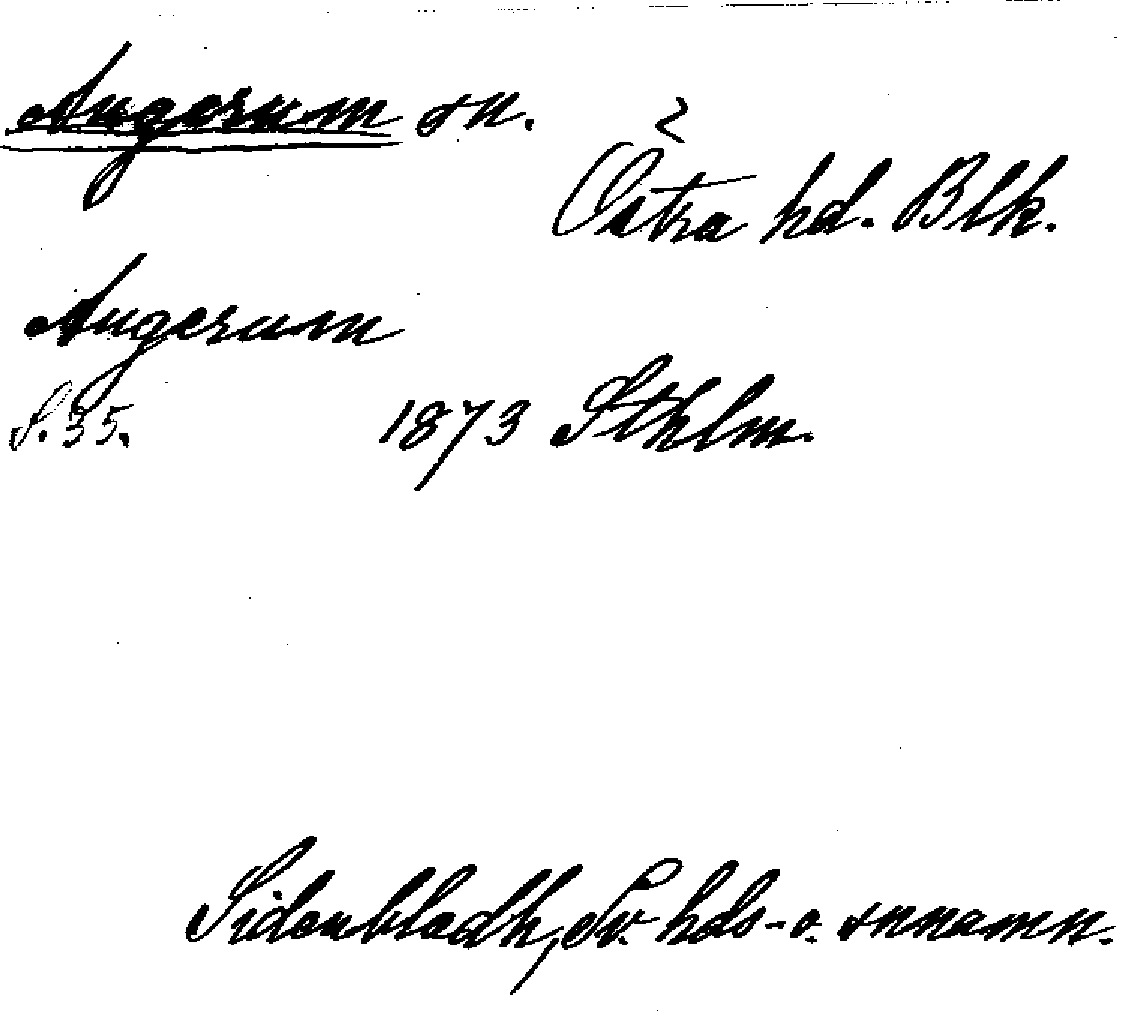 Augerum sn.
Östra hd. Blk.
Augerum
S. 35. 1873 Sthlm.
Sidenbladh, Sv. hds- o. snnamn.